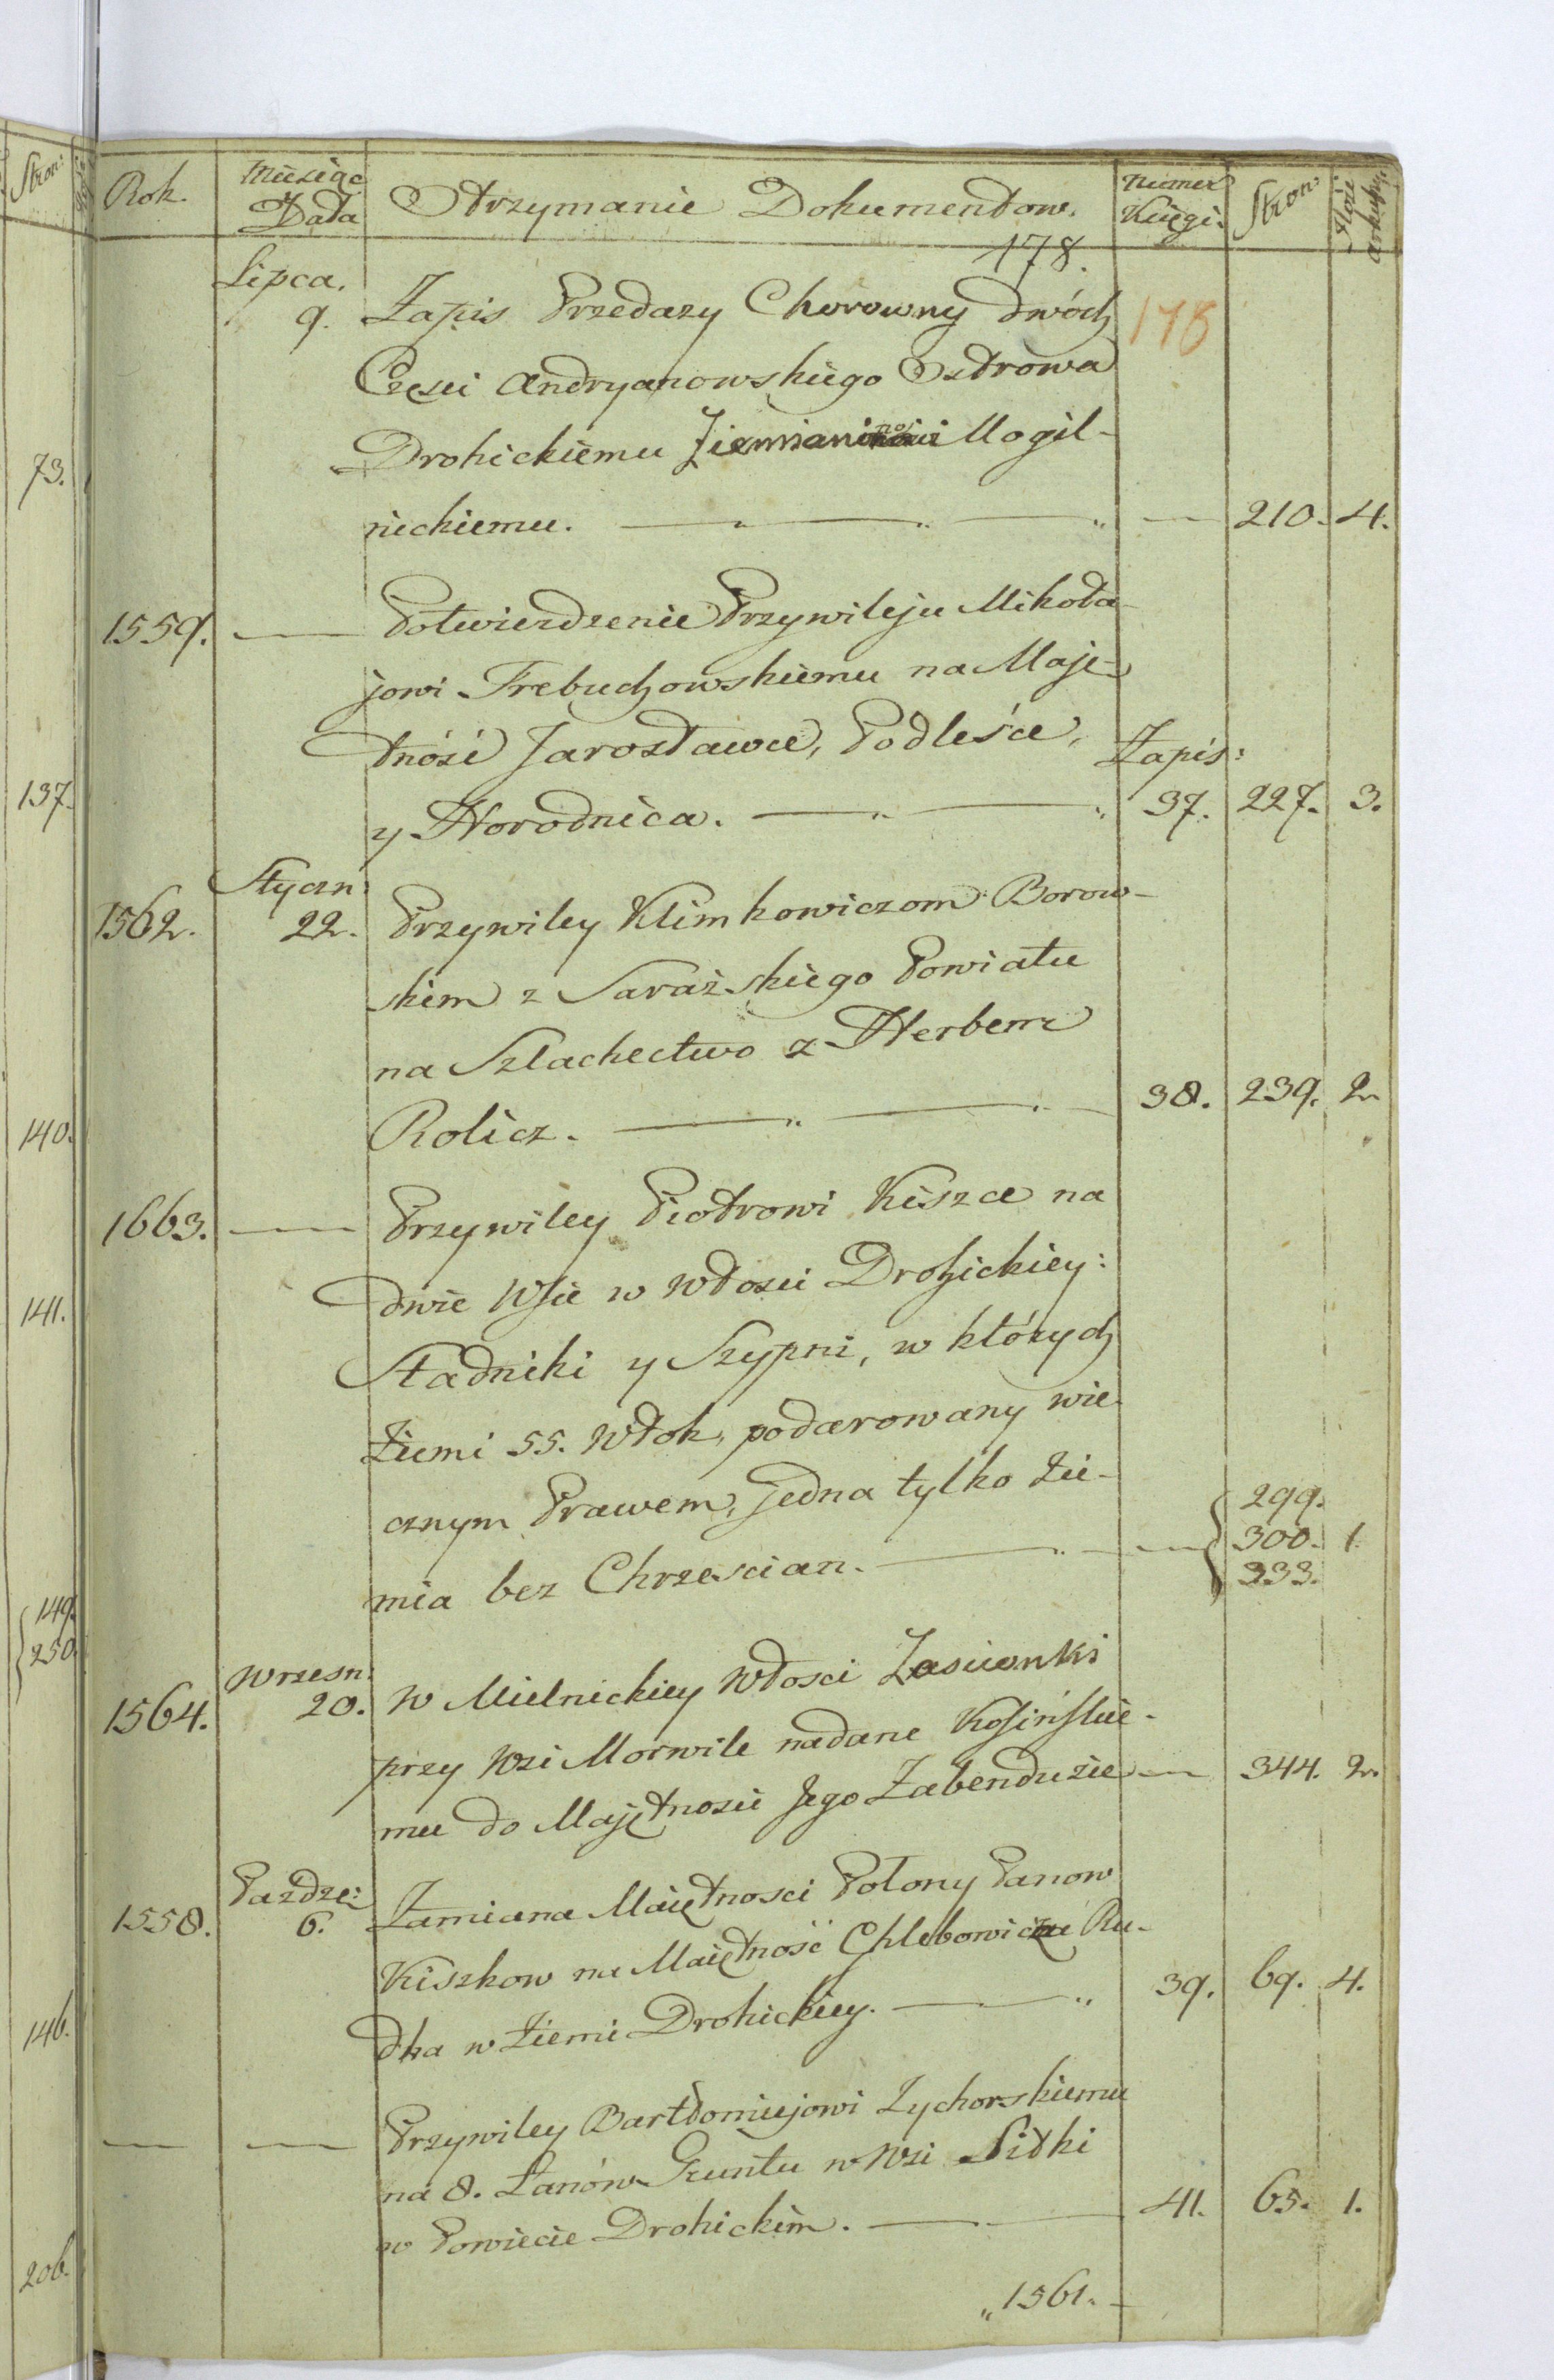 Stron:
Rok.
Miesiąc
Data
Otrzymanie Dokumentow.
Numer
Księgi.
Stron:
Ilość
arkuszy.
178.
Lipca.
9. Zapis Przedazy Chorowny dwóch 178
Częsci Andryanowskiego Ostrowa
Drohickiemu Ziemianinowi Mogil-
nickiemu. — 210. 4.
1559. — Potwierdzenie Przywileju Mikoła-
jowi Trebuchowskiemu na Maję-
tność Jarosławce, Podleśce, Zapis:
y Horodnica. — 37. 227. 3.
Styczn:
1562. 22. Przywiley Klimkowiczom Borow-
skim z Sarażskiego Powiatu
na Szlachectwo z Herbem
Rolicz. — 38. 239. 2.
1663. — Przywiley Piotrowi Kiszce na
dwie Wsie w Włosci Drohickiey:
Stadniki y Szypni, w których
Ziemi 55. Włok, podarowany wie-
cznym Prawem, jedna tylko Zie-
mia bez Chrzescian. — { 299. 300. 333. 1.
Wrzesn:
1564. 20. W Mielnickiey Włosci Zascionki
przy Wsi Morwile nadane Kosińskie-
mu do Majętnosci Jego Zabendusie — 344. 2.
Pazdze:
1558. 6. Zamiana Maiętnosci Połony Panow
Kiszkow na Maiętność Chlebowicza Ru-
dka w Ziemi Drohickiey. — 39. 69. 4.
— — Przywiley Bartłomiejowi Zychorskiemu
na 8. Łanów Gruntu w Wsi Sidki
w Powiecie Drohickim. — 41. 65. 1.
„1561.
73.
137.
140.
141.
{ 149.
250.
146.
206.